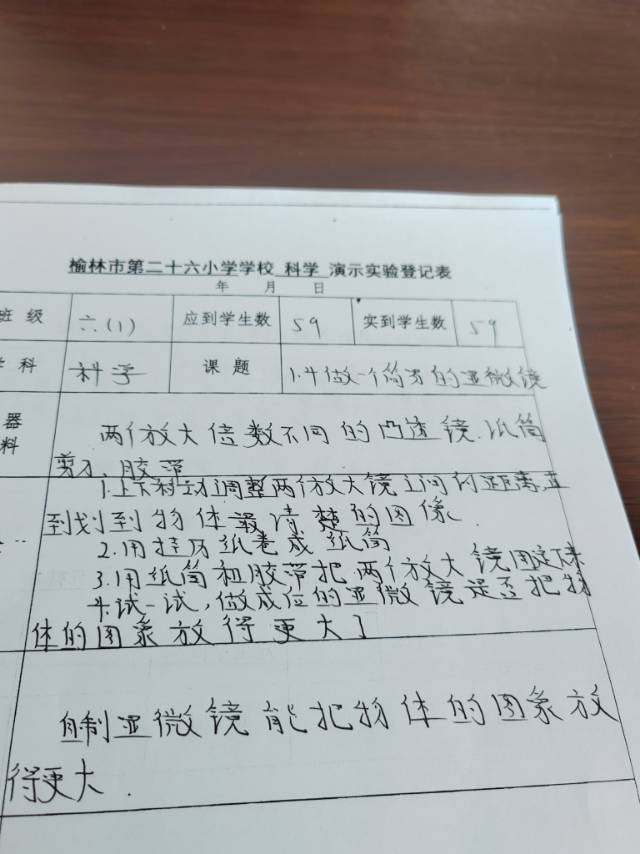 榆林市第二十六小学学校 科学 演示实验登记表
年 月 日
班 级 六(1) 应到学生数 59 实到学生数 59
学 科 科学 课 题 1.4做一个简易的显微镜
器 两个放大倍数不同的凸透镜.纸筒
料 剪刀、胶带
1.上下移动调整两个放大镜之间的距离,直
到找到物体最清楚的图像
2.用挂历纸卷成纸筒
3.用纸筒和胶带把两个放大镜固定下来
4.试一试,做成后的显微镜是否把物
体的图象放得更大了
自制显微镜能把物体的图象放
得更大.